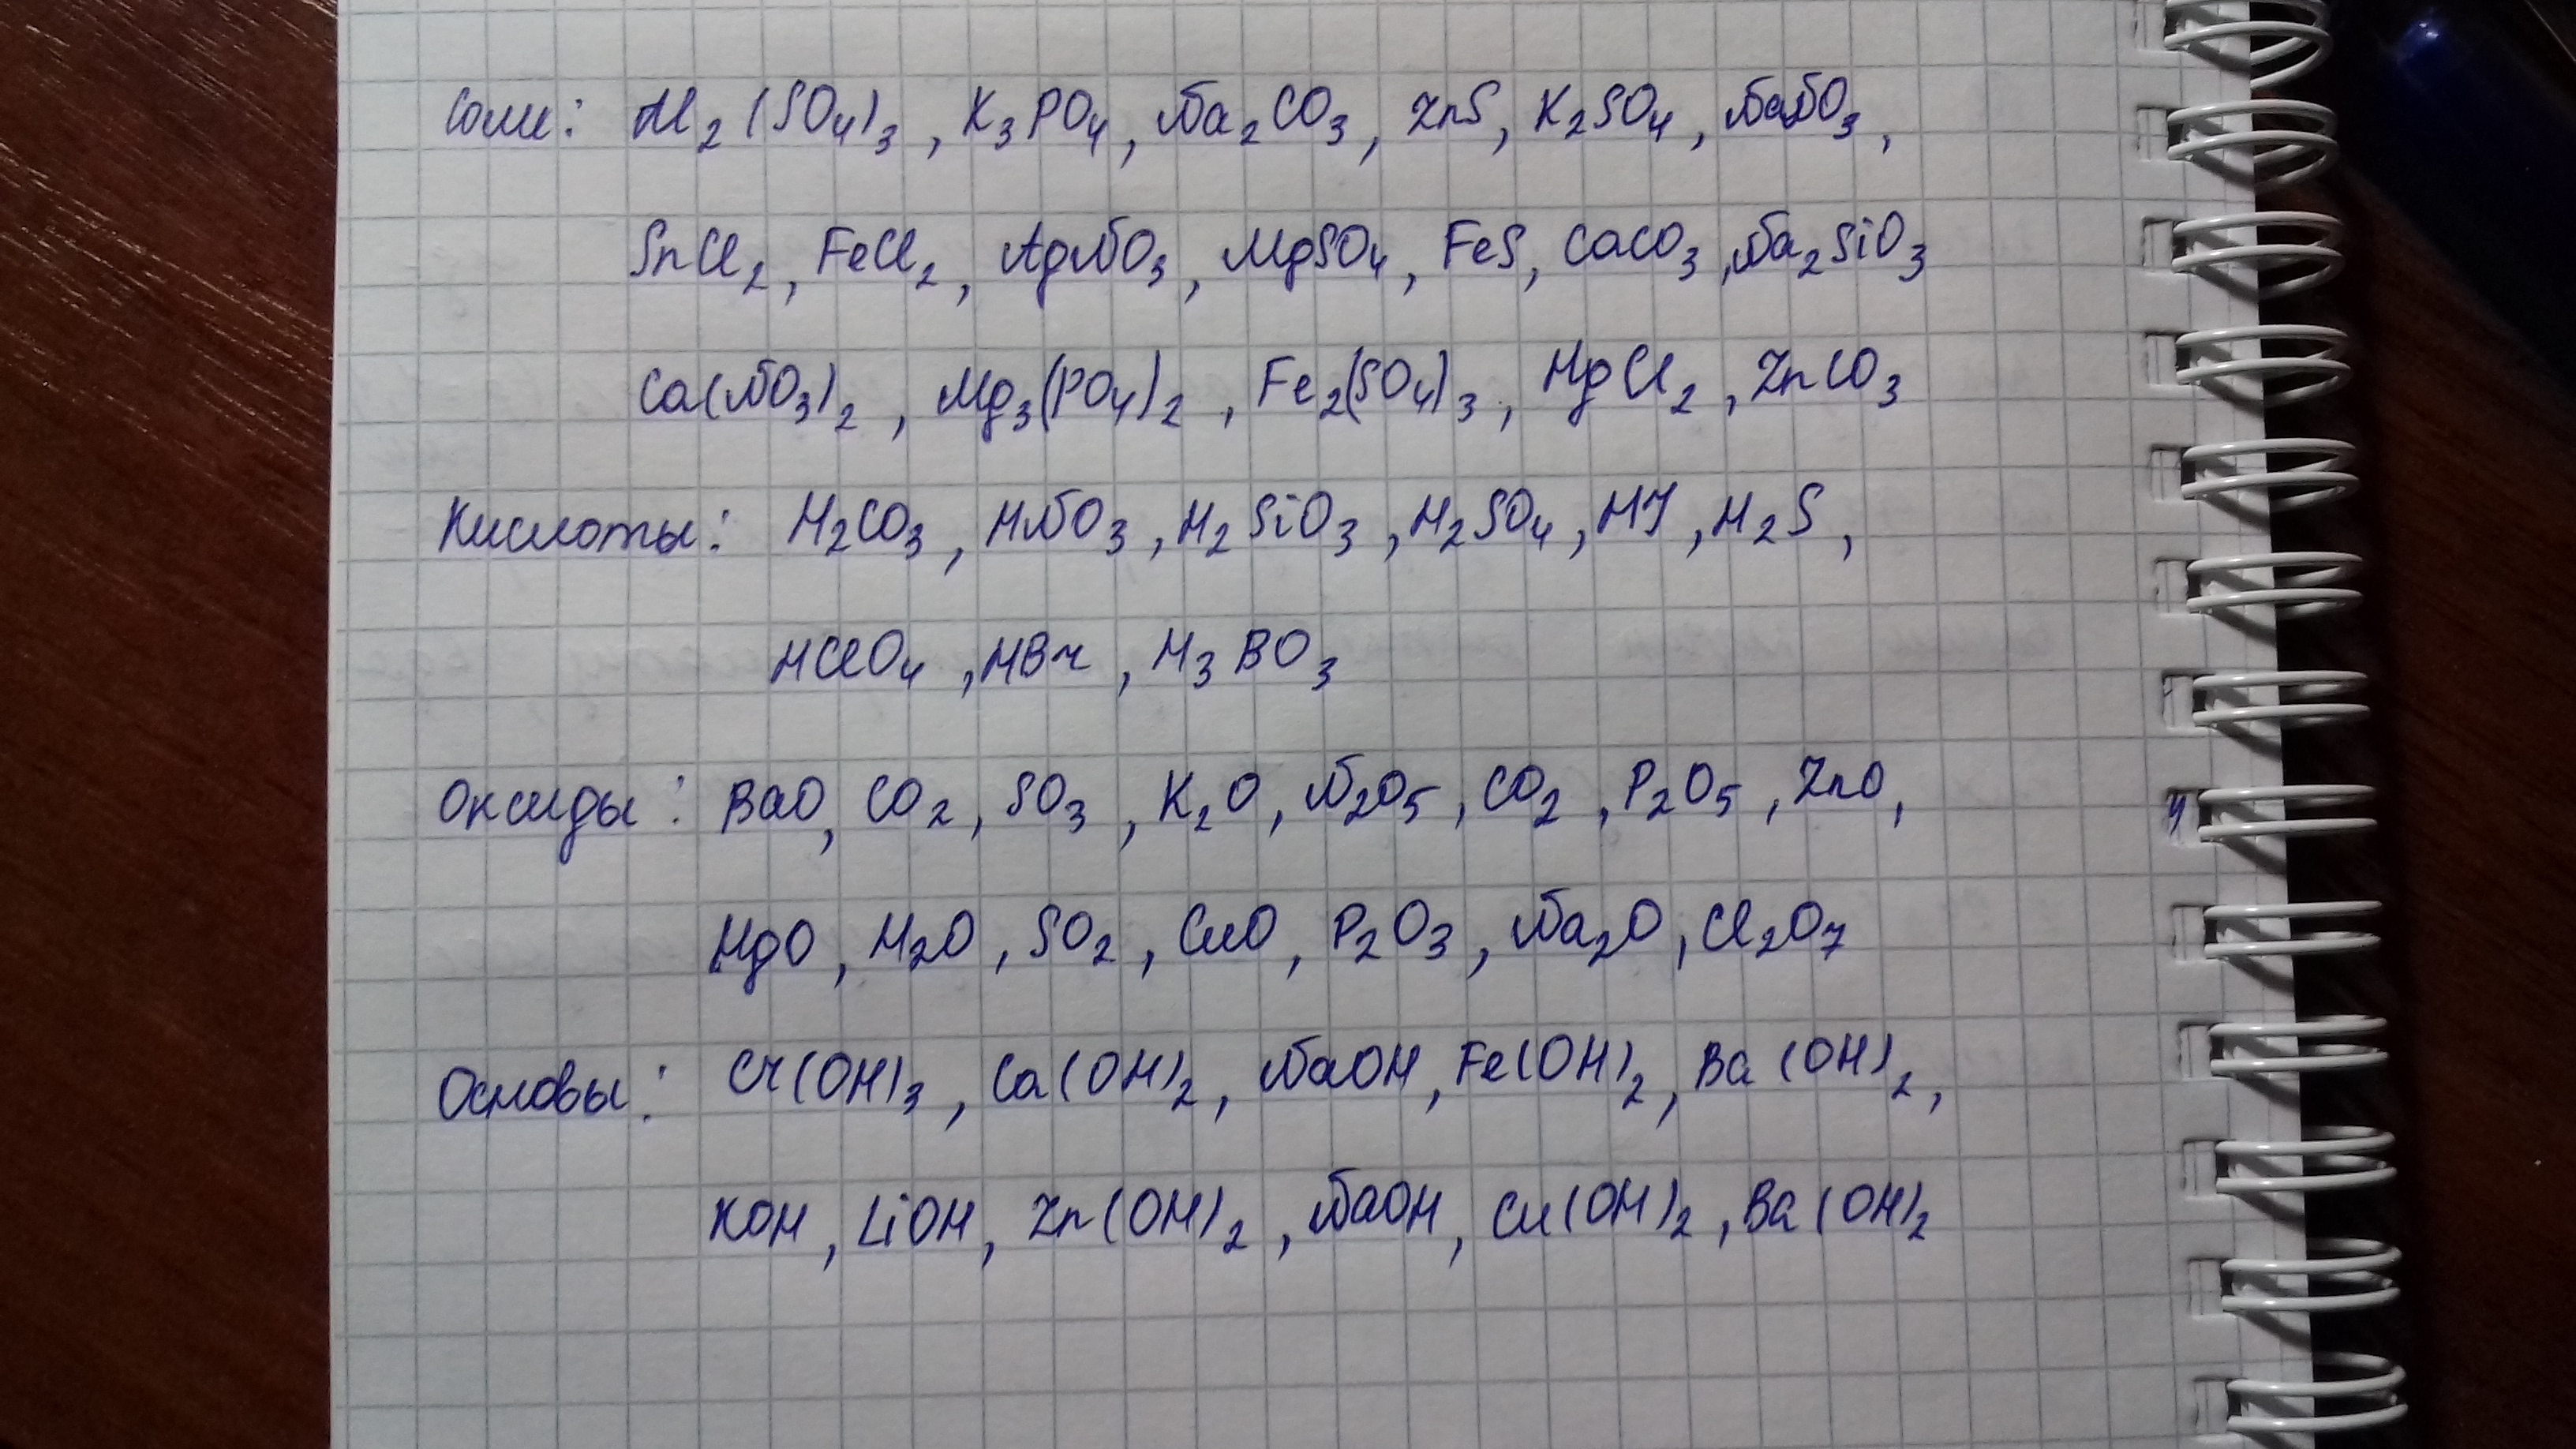 Соли: Al₂(SO₄)₃, K₃PO₄, Na₂CO₃, ZnS, K₂SO₄, NaNO₃,
SnCl₂, FeCl₂, AgNO₃, MgSO₄, FeS, CaCO₃, Na₂SiO₃
Ca(NO₃)₂, Mg₃(PO₄)₂, Fe₂(SO₄)₃, HgCl₂, ZnCO₃
Кислоты: H₂CO₃, HNO₃, H₂SiO₃, H₂SO₄, HJ, H₂S,
HClO₄, HBr, H₃BO₃
Оксиды: BaO, CO₂, SO₃, K₂O, N₂O₅, CO₂, P₂O₅, ZnO,
HgO, H₂O, SO₂, CuO, P₂O₃, Na₂O, Cl₂O₇
Основы: Cr(OH)₃, Ca(OH)₂, NaOH, Fe(OH)₂, Ba(OH)₂,
KOH, LiOH, Zn(OH)₂, NaOH, Cu(OH)₂, Ba(OH)₂